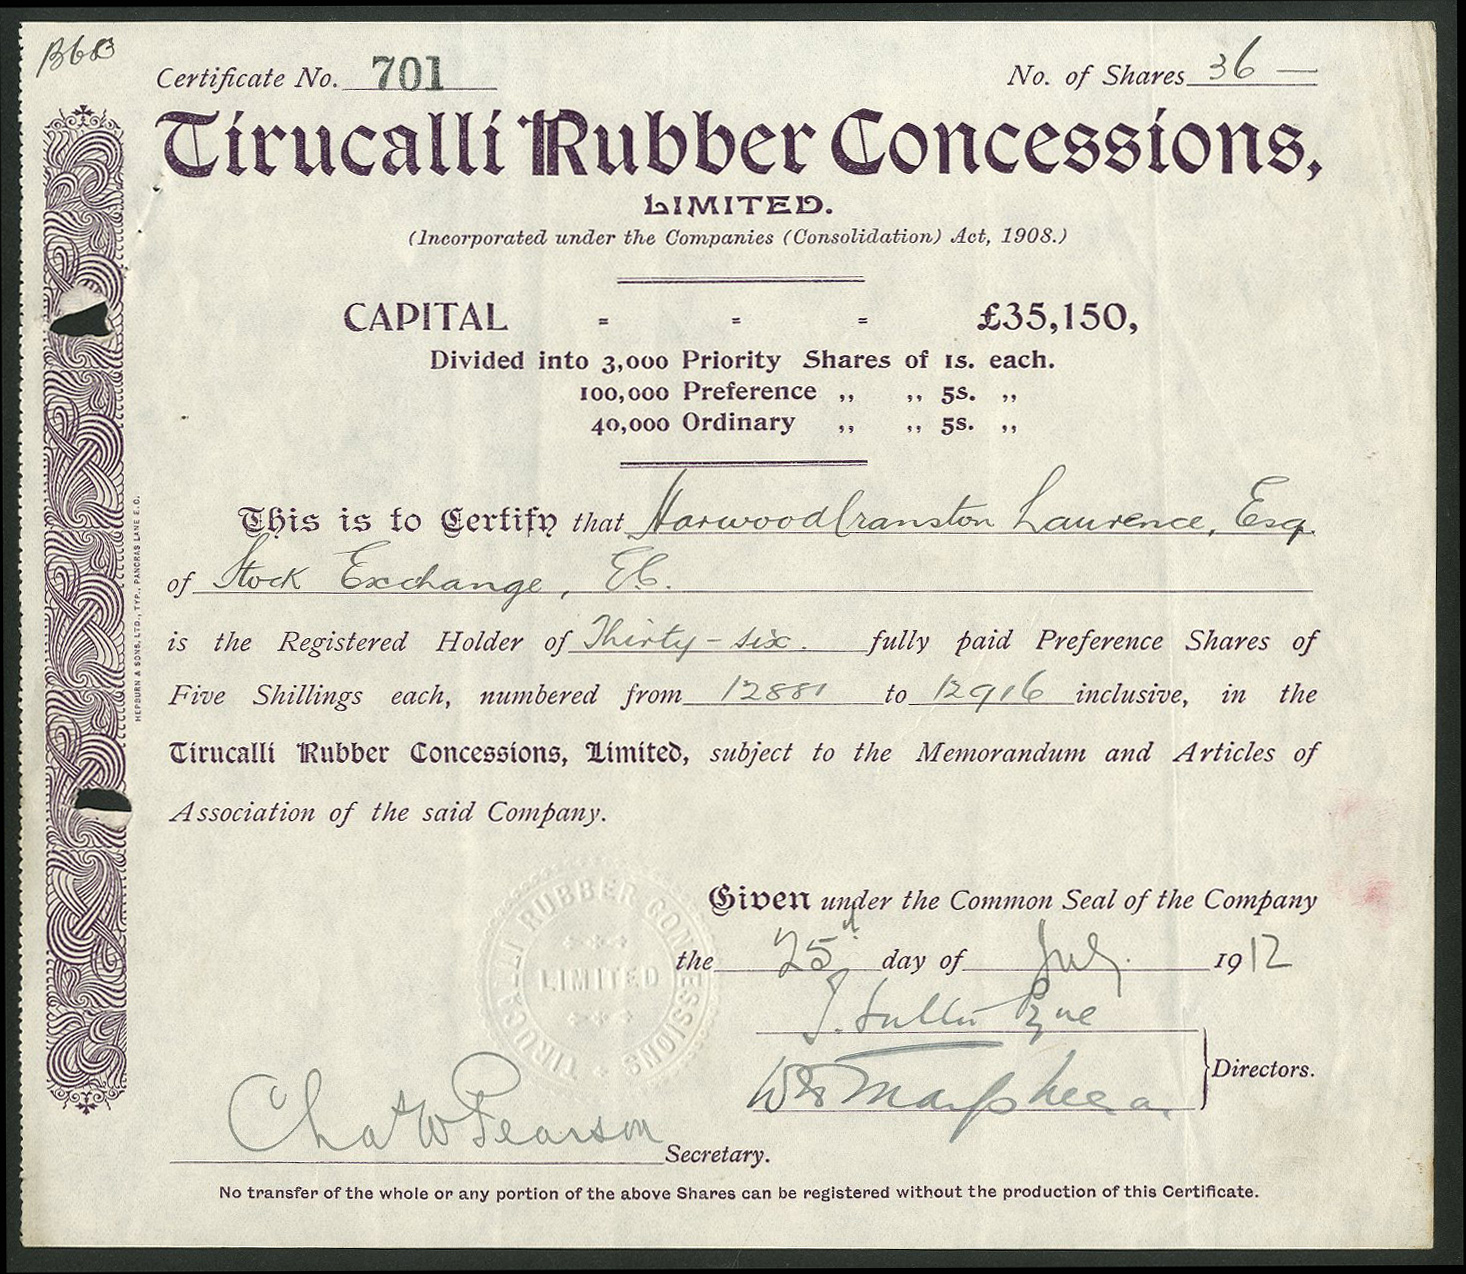 B60
Certificate No. 701 No. of Shares 36 —
Tirucalli Rubber Concessions,
LIMITED.
(Incorporated under the Companies (Consolidation) Act, 1908.)
CAPITAL = = = £35,150,
Divided into 3,000 Priority Shares of 1s. each.
100,000 Preference ,, ,, 5s. ,,
40,000 Ordinary ,, ,, 5s. ,,
This is to Certify that Harwood Cranston Laurence, Esq.
of Stock Exchange, E.C.
is the Registered Holder of Thirty-six. fully paid Preference Shares of
Five Shillings each, numbered from 12881 to 12916 inclusive, in the
Tirucalli Rubber Concessions, Limited, subject to the Memorandum and Articles of
Association of the said Company.
Given under the Common Seal of the Company
the 25th day of July. 1912
Directors.
Chas W Pearson
Secretary.
No transfer of the whole or any portion of the above Shares can be registered without the production of this Certificate.
HEPBURN & SONS, LTD., TYP., PANCRAS LANE E.C.
TIRUCALLI RUBBER CONCESSIONS
LIMITED